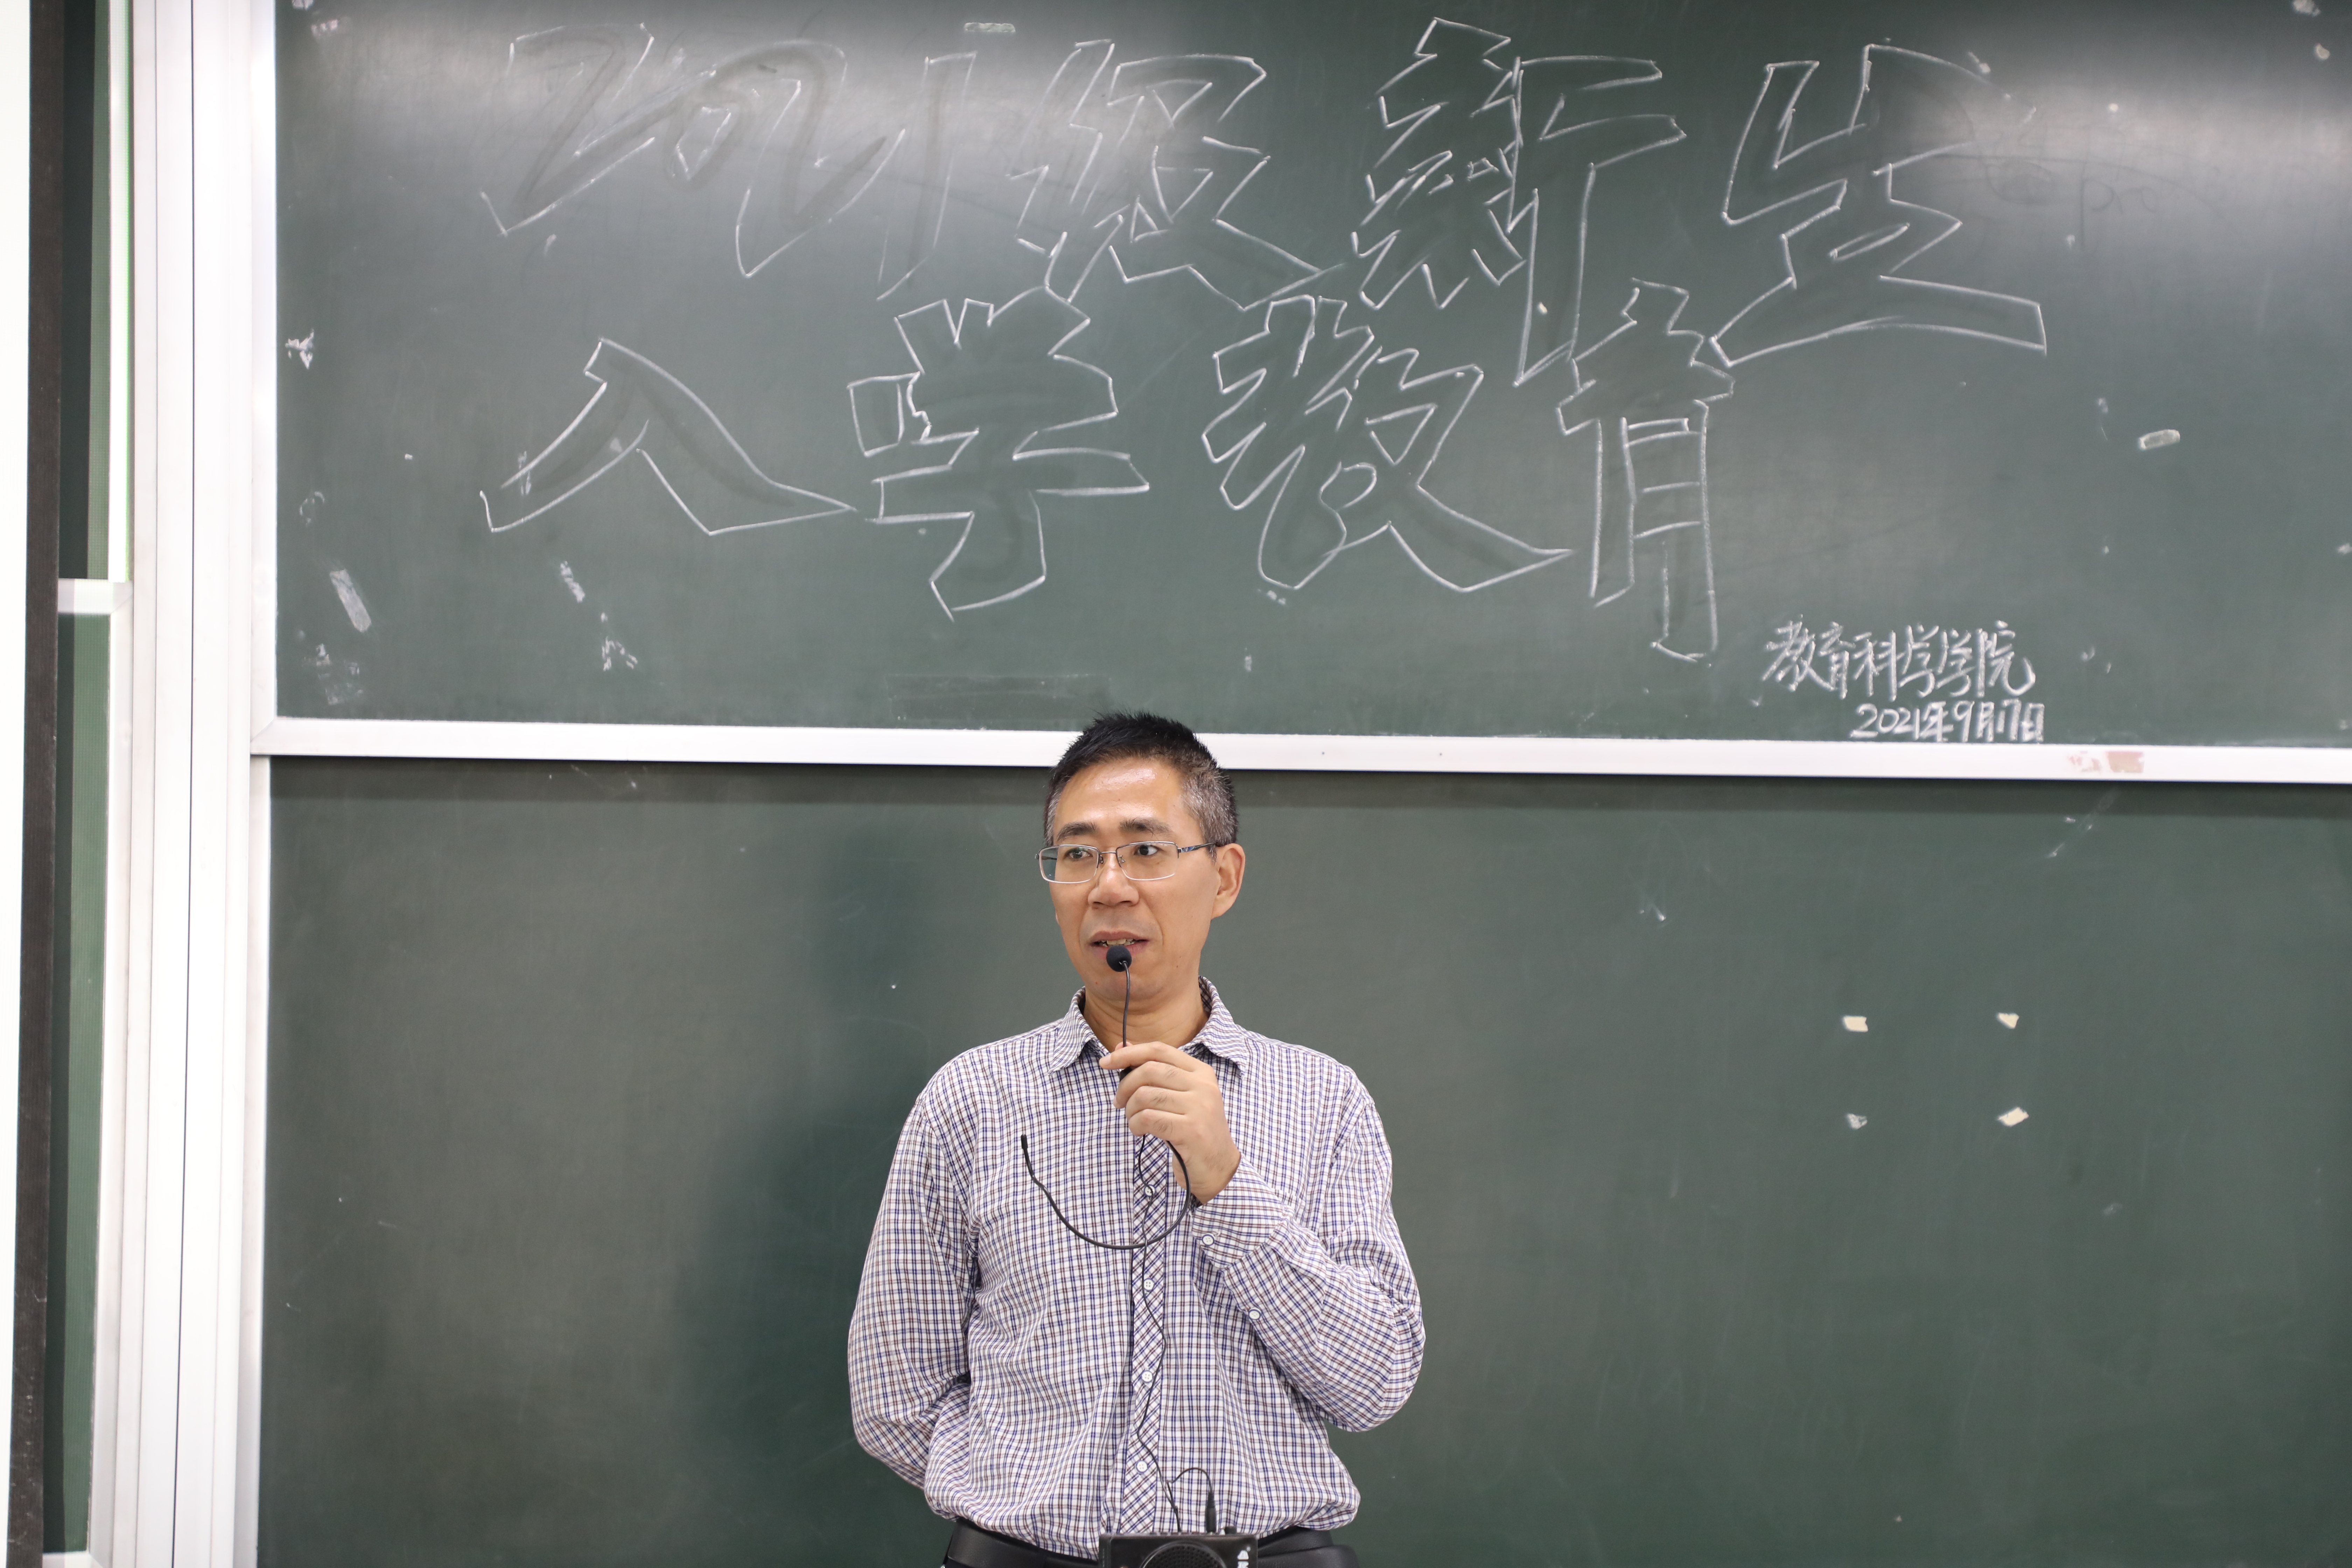 2021级新生
入学教育
教育科学学院
2021年9月17日